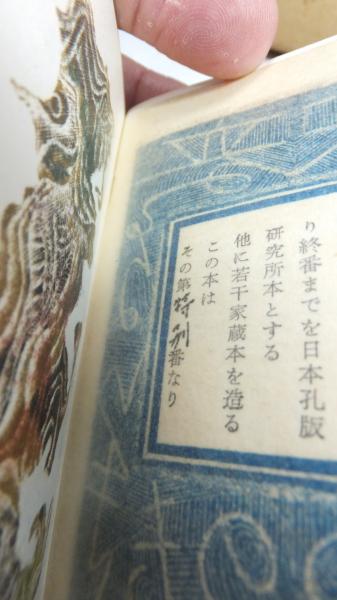 り終番までを日本孔版
研究所本とする
他に若干家蔵本を造る
この本は
その第特別番なり